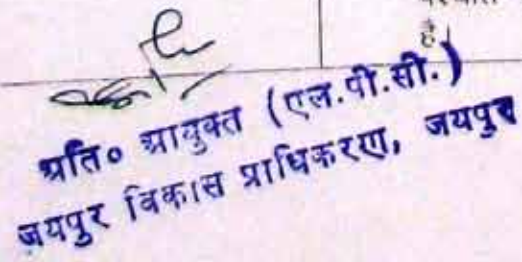 है।
प्रति० आयुक्त (एल.पी.सी.)
जयपुर विकास प्राधिकरण, जयपुर